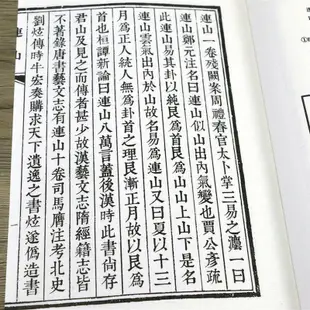 連山一卷殘闕案周禮春官太卜掌三易之灋一曰
連山鄭元注名曰連山似山出內氣變也賈公彥疏
此連山易其卦以純艮爲首艮爲山山上山下是名
連山雲氣出內於山故名易爲連山又曰夏以十三
月爲正人統人無爲卦首之理艮漸正月故以艮爲
首也桓譚新論曰連山八萬言蓋後漢時此書尚存
君山及見之而傳者甚少故漢藝文志隋經籍志皆
不著錄唐書藝文志有連山十卷司馬膺注考北史
劉炫傳時牛宏奏購求天下遺逸之書炫遂僞造書
連山